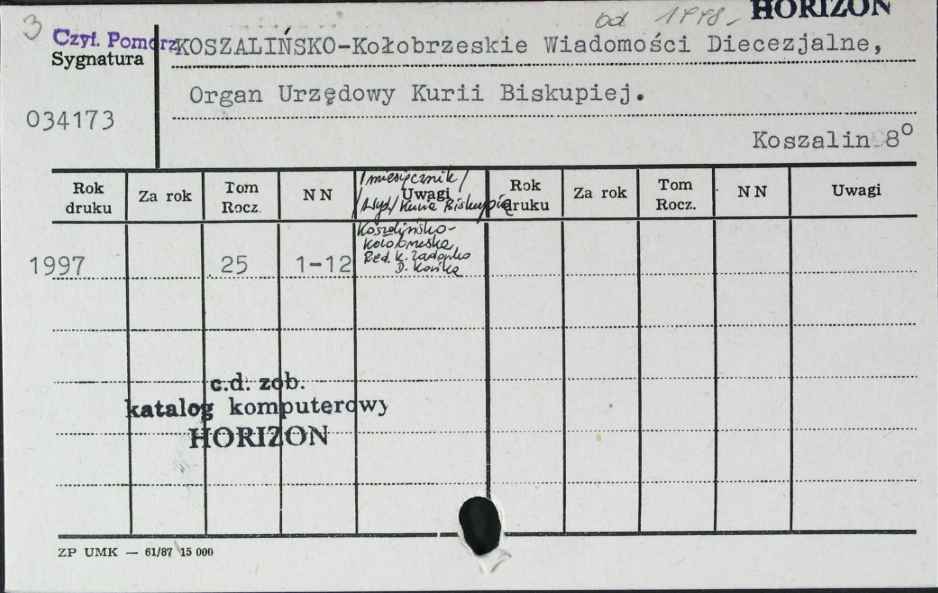 3
od 1998- HORIZON
Czyt. Pomorz
Sygnatura
034173
KOSZALIŃSKO-Kołobrzeskie Wiadomości Diecezjalne,
Organ Urzędowy Kurii Biskupiej.
Koszalin 8°
Rok druku
Za rok
Tom Rocz.
N N
/miesięcznik/
Uwagi
/Wyd/ Kuria Biskupia
Rok druku
Za rok
Tom Rocz.
N N
Uwagi
Koszalińsko-
Kołobrzeska,
Red. K.
D.
1997 25 1-12
c.d. zob.
katalog komputerowy
HORIZON
ZP UMK — 61/87 15 000